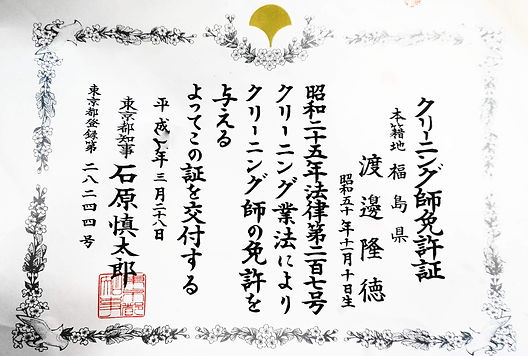 クリーニング師免許証
本籍地 福島県
渡邊隆徳
昭和五十年十一月十日生
昭和二十五年法律第二百七号
クリーニング業法により
クリーニング師の免許を
与える
よってこの証を交付する
平成 年三月二十八日
東京都知事 石原慎太郎
東京都登録第 二八二四四 号